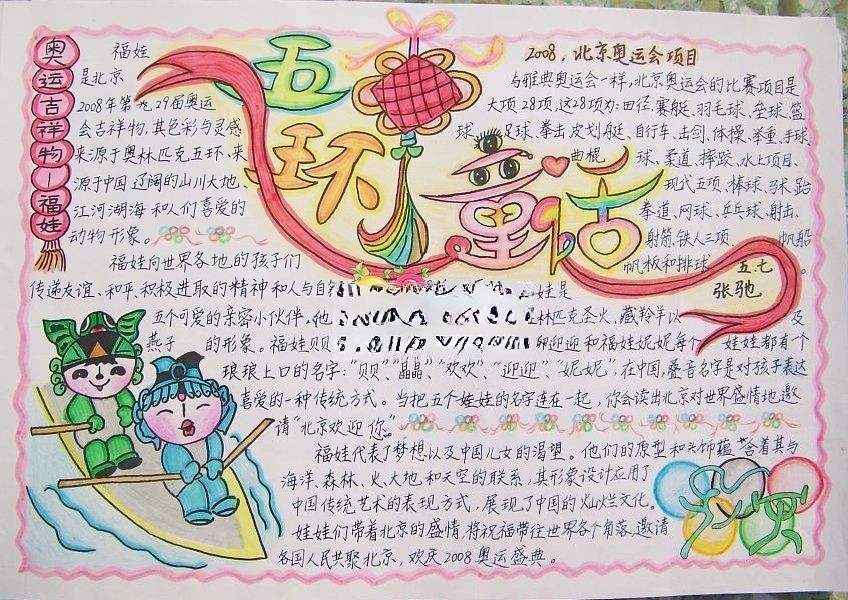 奥运吉祥物—福娃
五环童话
福娃
是北京
2008年第 29届奥运
会吉祥物,其色彩与灵感
来源于奥林匹克五环、来
源于中国辽阔的山川大地、
江河湖海和人们喜爱的
动物形象。
福娃向世界各地的孩子们
传递友谊、和平、积极进取的精神和人与自
娃是
五个可爱的亲密小伙伴,他
林匹克圣火、藏羚羊以及
燕子的形象。福娃贝贝
迎迎和福娃妮妮每个娃娃都有个
琅琅上口的名字:"贝贝"、"晶晶"、"欢欢"、"迎迎"、"妮妮",在中国,叠音名字是对孩子表达
喜爱的一种传统方式。当把五个娃娃的名字连在一起,你会读出北京对世界盛情地邀
请"北京欢迎您"
福娃代表了梦想以及中国儿女的渴望。他们的原型和头饰蕴含着其与
海洋、森林、火、大地和天空的联系,其形象设计应用了
中国传统艺术的表现方式,展现了中国的灿烂文化。
娃娃们带着北京的盛情,将祝福带往世界各个角落,邀请
各国人民共聚北京,欢庆2008奥运盛典。
2008,北京奥运会项目
与雅典奥运会一样,北京奥运会的比赛项目是
大项28项,这28项为:田径、赛艇、羽毛球、垒球、篮
球、足球、拳击、皮划艇、自行车、击剑、体操、举重、手球、
曲棍球、柔道、摔跤、水上项目、
现代五项、棒球、马术、跆
拳道、网球、乒乓球、射击、
射箭、铁人三项、帆船
帆板和排球。
五七
张驰